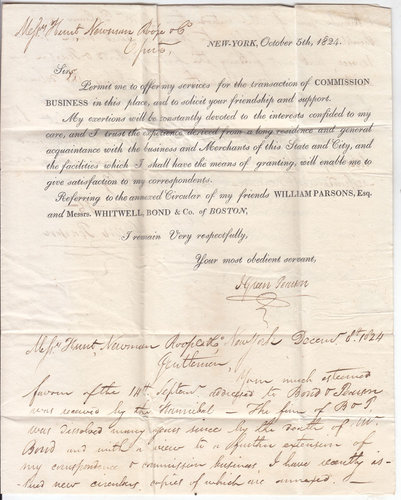 Messrs Hunt, Newman Roope & Co
Oporto,
NEW-YORK, October 5th, 1824.
Sirs,
Permit me to offer my services for the transaction of COMMISSION
BUSINESS in this place, and to solicit your friendship and support.
My exertions will be constantly devoted to the interests confided to my
care, and I trust the experience derived from a long residence and general
acquaintance with the business and Merchants of this State and City, and
the facilities which I shall have the means of granting, will enable me to
give satisfaction to my correspondents.
Referring to the annexed Circular of my friends WILLIAM PARSONS, Esq.
and Messrs. WHITWELL, BOND & Co. of BOSTON,
I remain Very respectfully,
Your most obedient servant,
Messrs Hunt, Newman Roope & Co New York Decemr 8th 1824
Gentlemen,
Your much esteemed
favour of the 14th Septemr addressed to Bond & Pearson
was received by the Hannibal – The firm of B & P.
was dissolved many years since by the death of Mr.
Bond and with a view to a further extension of
my correspondence & commission business, I have recently is-
sued new circulars copies of which are annexed.